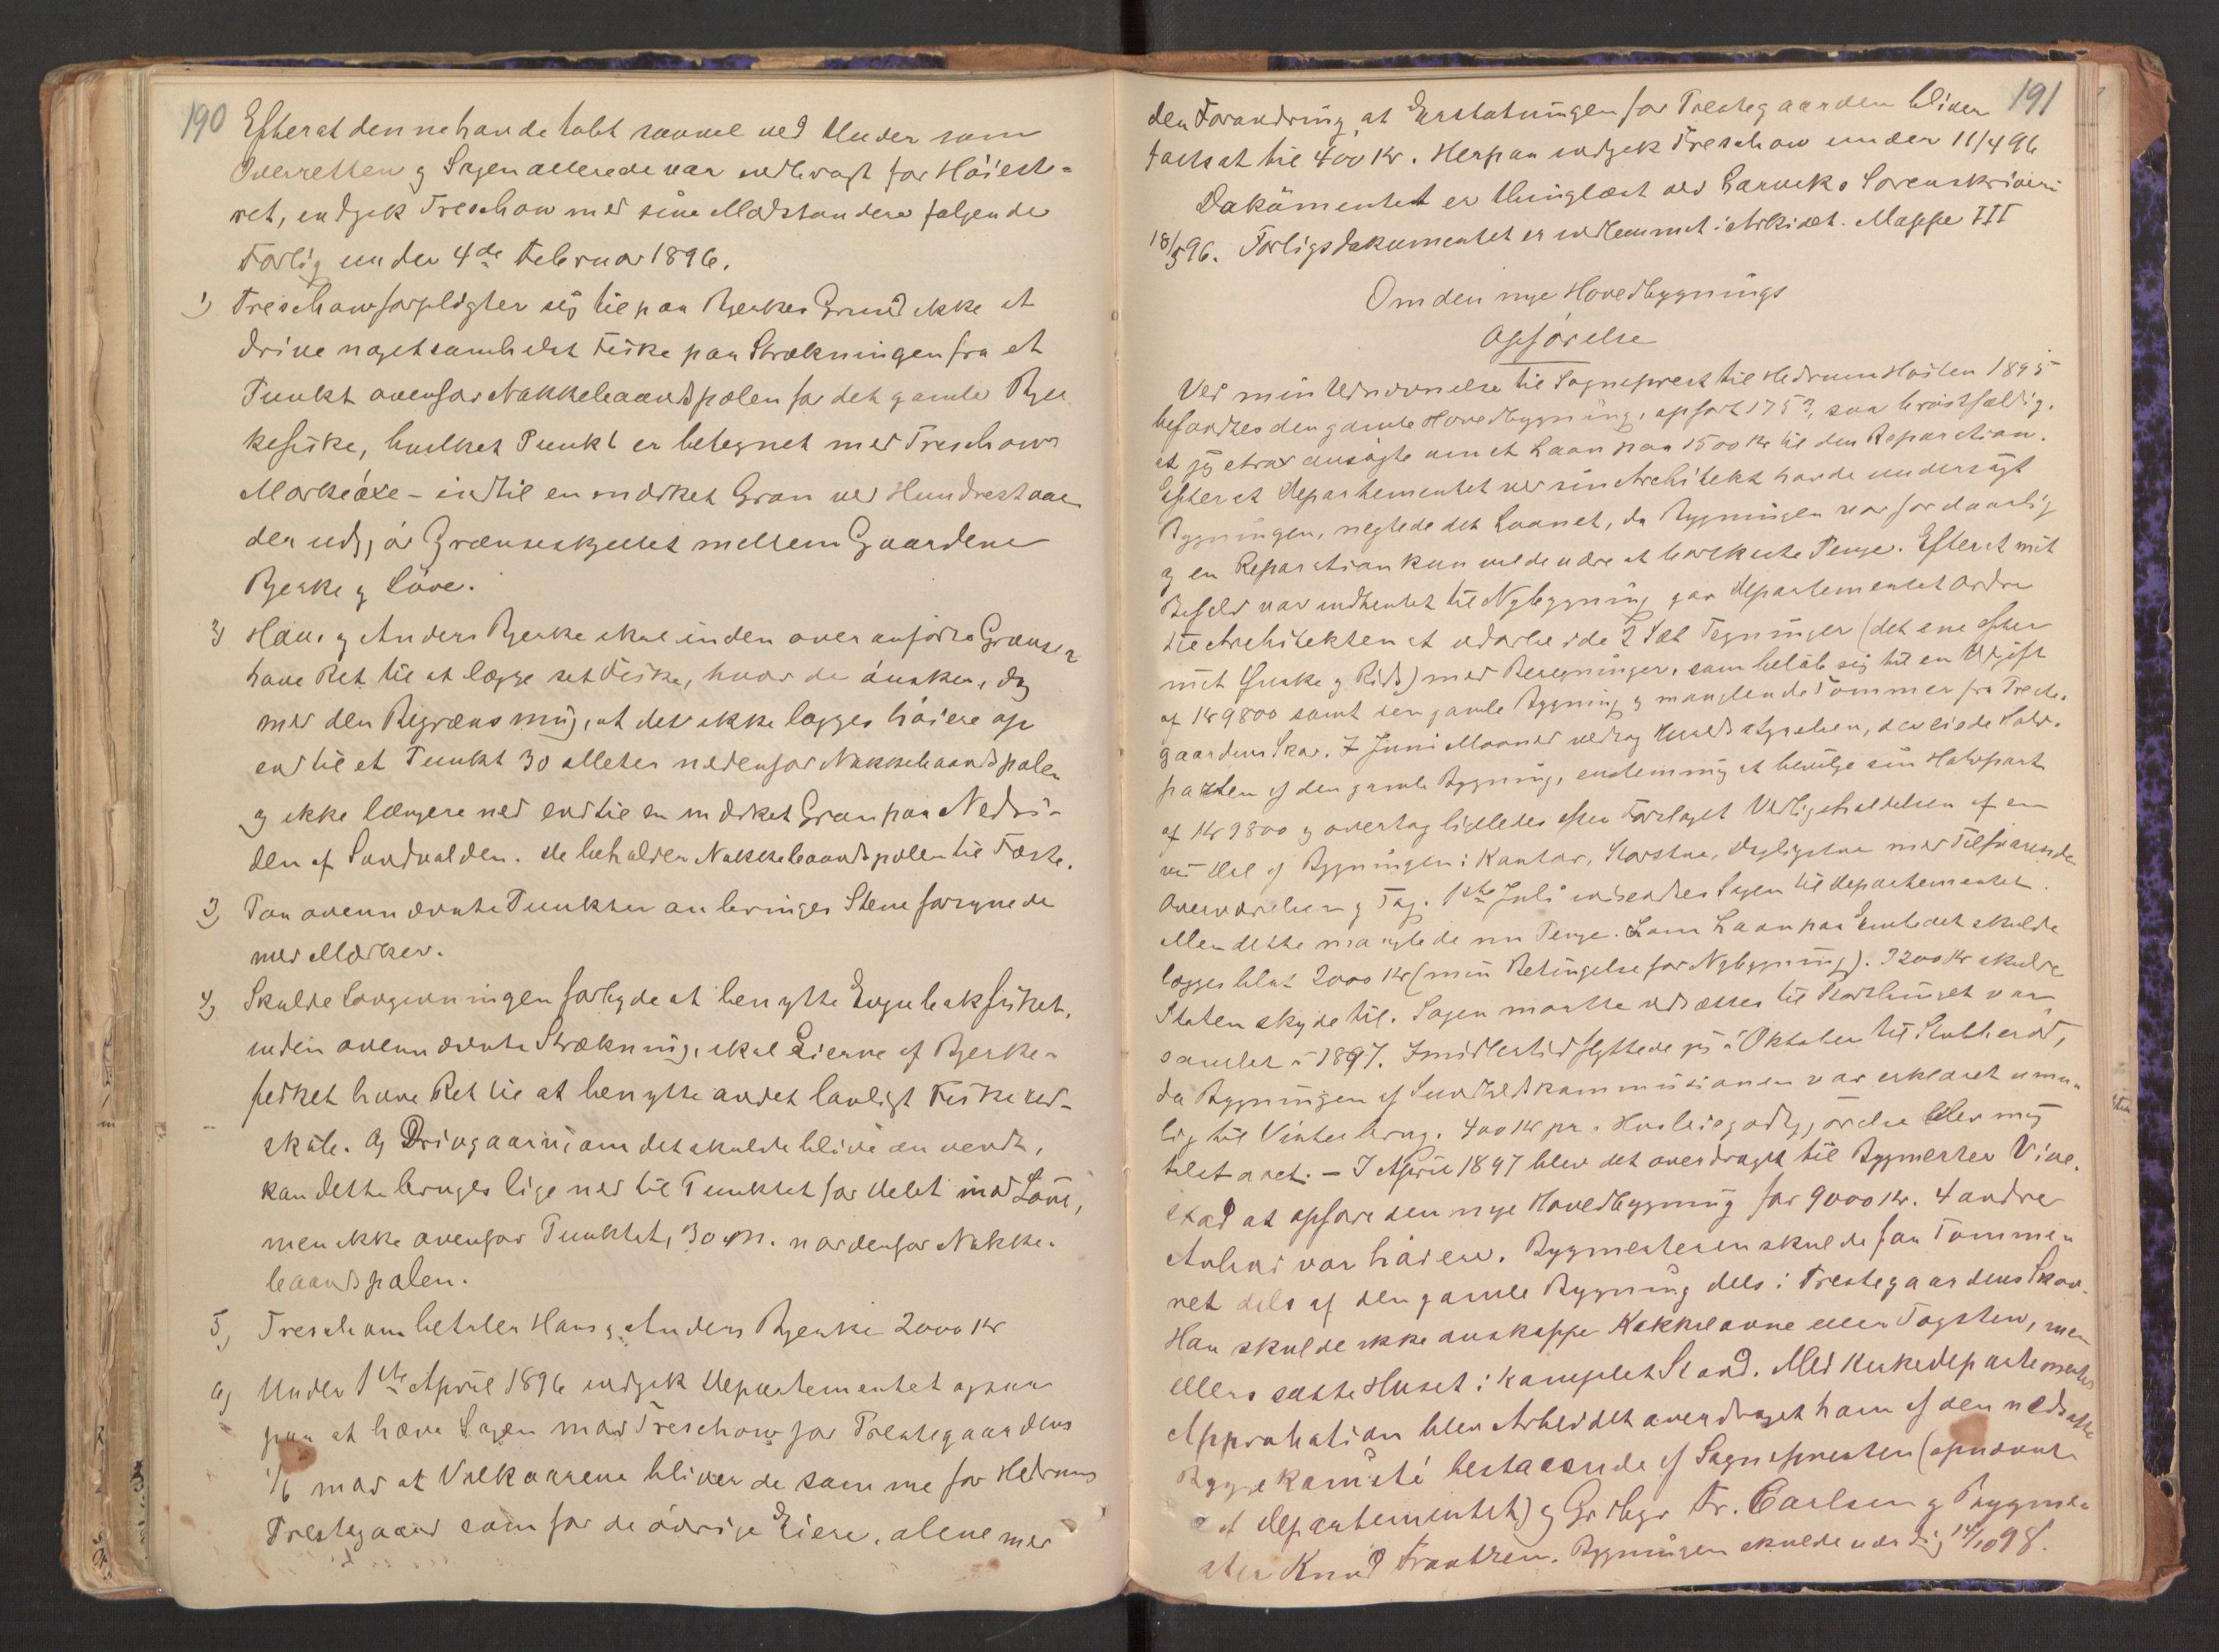 190
Efterat denne havde tabt saavel ved Under som
Overretten og Sagen allerede var indbragt for Höieste-
ret, indgik Treschow med sine Modstandere følgende
Forlig under 4de Februar 1896.
1) Treschow forpligter sig til paa Bjerkes Grund ikke at
drive noget somhelst Fiske paa Strækningen fra et
Punkt ovenfor Nakkebaandspolen for det gamle Bjer
kefiske, hvilket Punkt er betegnet med Treschows
Mærkeöxe - indtil en mærket Gran ved Hundrestaaen
der udgjör Grænseskjellet mellem Gaardene
Bjerke og Löve.
2) Hans og Anders Bjerke skal inden ovenanförte Grænser
have Ret til at lægge sit Fiske, hvor de önsker, dog
med den Begrænsning, at det ikke lægges höiere op
end til et Punkt 30 Meter nedenfor Nakkebaandspolen
og ikke længere ned end til en mærket Gran paa Nedsi-
den af Sandvolden. De beholder Nakkebaandspolen til Fæste.
3) Paa ovennævnte Punkter anbringes Stene forsynede
med Mærker.
4) Skulde Lovgivningen forbyde at benytte Engebakfisket,
inden ovennævnte Strækning, skal Eierne af Bjerke-
fisket have Ret til at benytte andet lovligt Fiskered-
skab. Og Drivgarn, om det skulde blive anvendt,
kan dette bruges lige ned til Punktet for Delet mod Löve,
men ikke ovenfor Punktet, 30 M. nordenfor Nakke-
baandspolen.
5) Treschow betaler Hans og Anders Bjerke 2000 Kr
6) Under 1ste April 1896 indgik Departementet ogsaa
paa at hæve Sagen mod Treschow for Prestegaardens
1/6 mod at Vilkaarene bliver de samme for Hedrums
Prestegaard som for de övrige Eiere, alene med
191
den Forandring, at Erstatningen for Prestegaarden bliver
fastsat til 400 Kr. Herpaa indgik Treschow under 11/4 96
Dokümentet er thinglæst ved Larviks Sorenskriveri
18/5 96. Forligsdokumentet er indlemmet i Arkivet. Mappe III
Om den nye Hovedbygnings
Opförelse
Ved min Udnævnelse til Sogneprest til Hedrum Hösten 1895
befandtes den gamle Hovedbygning, opfört 1753, saa bröstfældig,
at jeg strax ansögte om et Laan paa 1500 Kr til den Reparation.
Efterat Departementet ved sin Architekt havde undersögt
Bygningen, negtede det Laanet, da Bygningen var for daarlig
og en Reparation kun vilde være at bortkaste Penge. Efterat mit
Besked var indhentet til Nybygning gav Departementet Ordre
til Architekten at udarbeide 2 Sæt Tegninger (det ene efter
mit Ønske og Rids) med Beregninger, som belöb sig til en Udgift
af Kr 9800 samt den gamle Bygning og manglende Tömmer fra Preste-
gaardens Skov. I Juni Maaned vedtog Herredsstyrelsen, der eiede Halv-
parten af den gamle Bygning, enstemmig at bevilge sin Halvpart
af Kr 9800 og overtog ligeledes efter Forslaget Vedligeholdelsen af en
vis Del af Bygningen: Kontor, Storstue, Dagligstue med Tilsvarende
Overværelser og Tag. 1ste Juli indsendtes Sagen til Departementet.
Men dette manglede nu Penge. Som Laan paa Embedet skulde
lægges blot 2000 Kr (min Betingelse for Nybygning). 3200 Kr skulde
Staten skyde til. Sagen maatte udsættes til Storthinget var
samlet i 1897. Imidlertid flyttede jeg i Oktober til Skutteröd,
da Bygningen af Sundhedskommissionen var erklæret umu-
lig til Vinterbrug. 400 Kr pr. i Husleiegodtgjörelse blev mig
tilstaaet. - I April 1897 blev det overdraget til Bygmester Vive-
stad at opföre den nye Hovedbygning for 9000 Kr. 4 andre
Anbud var höiere. Bygmesteren skulde faa Tömme-
ret dels af den gamle Bygning dels i Prestegaardens Skov.
Han skulde ikke anskaffe Kakkelovne eller Tagsten, men
ellers sætte Huset i komplet Stand. Med Kirkedepartementets
Approbation blev Arbeidet overdraget ham af den nedsatte
Byggekomité bestaaende af Sognepresten (opnævnt
af Departementet) og Grdbgr Fr. Carlsen og Bygme-
ster Knud Frantzen. Bygningen skulde være færdig 14/10 98.